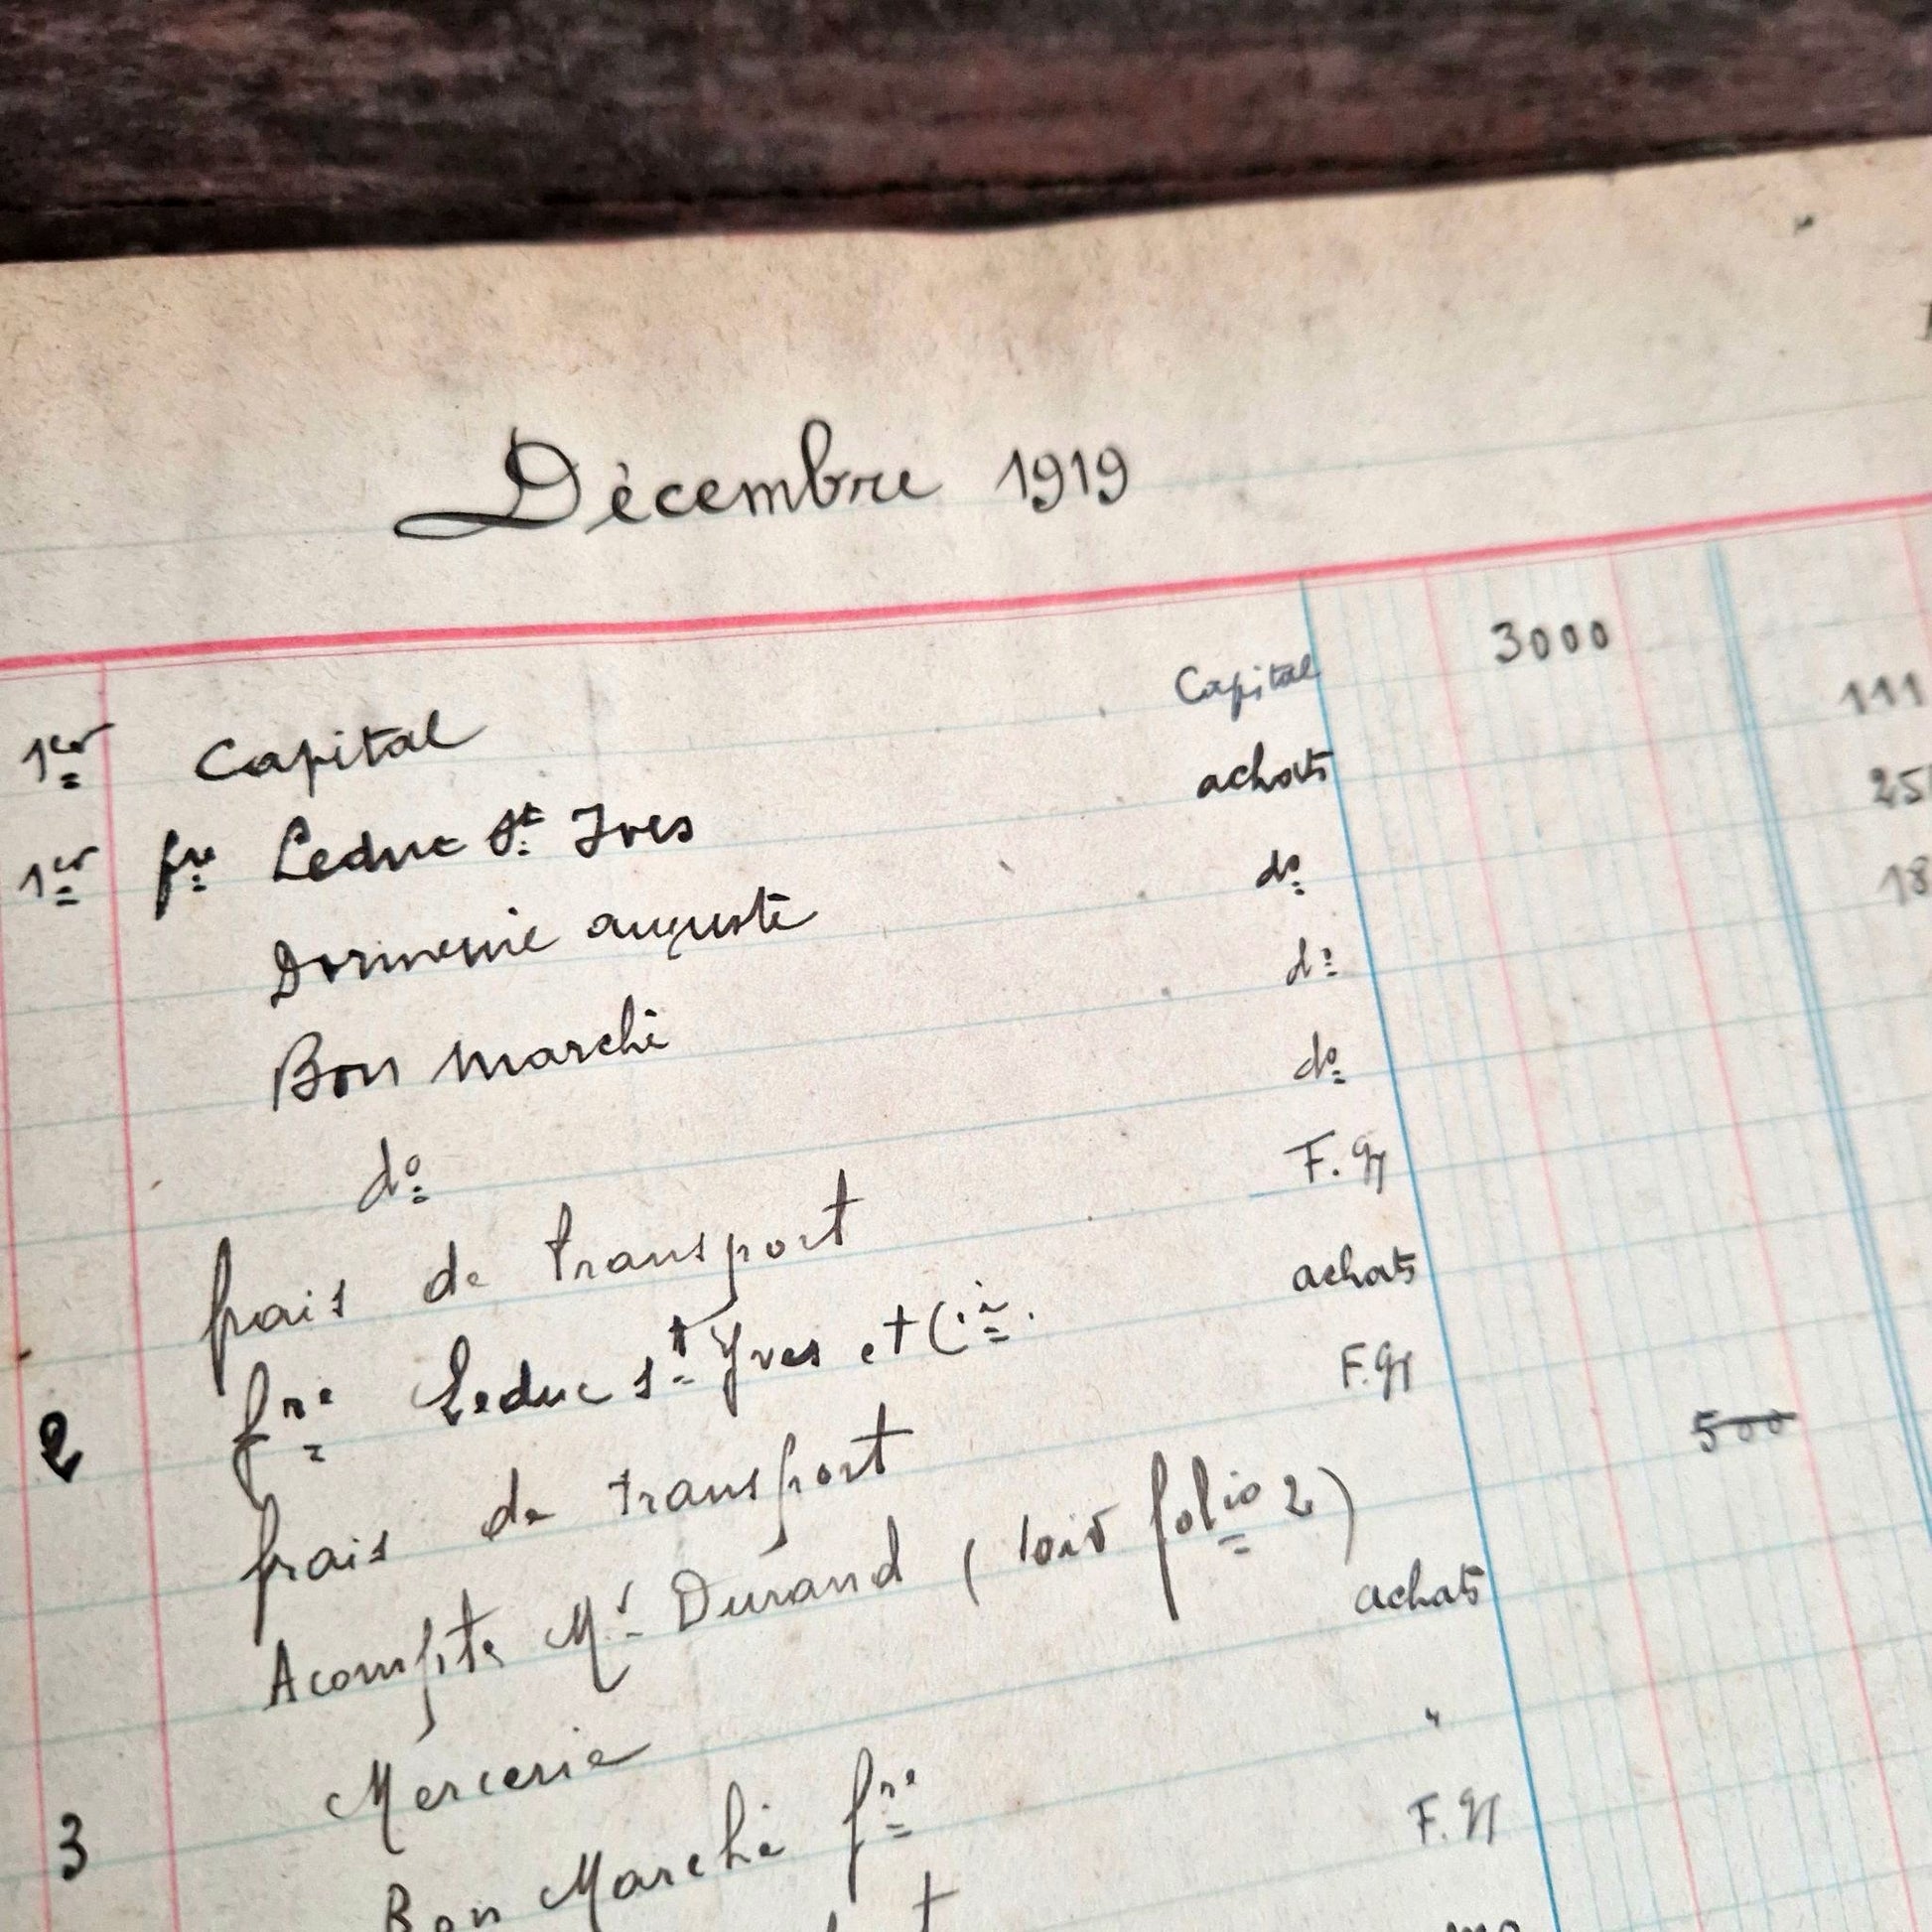 Décembre 1919
1er Capital Capital 3000
1er fre Leduc St Yves achats 111
auguste do 25
Bon marché do 18
do do
frais de transport F. gx
fre Leduc St Yves et Cie. achats
2 frais de transport F. gx
Acompte Mr Durand (voir folio 2) 500
Mercerie achats
3 Bon Marché fre "
F. gx